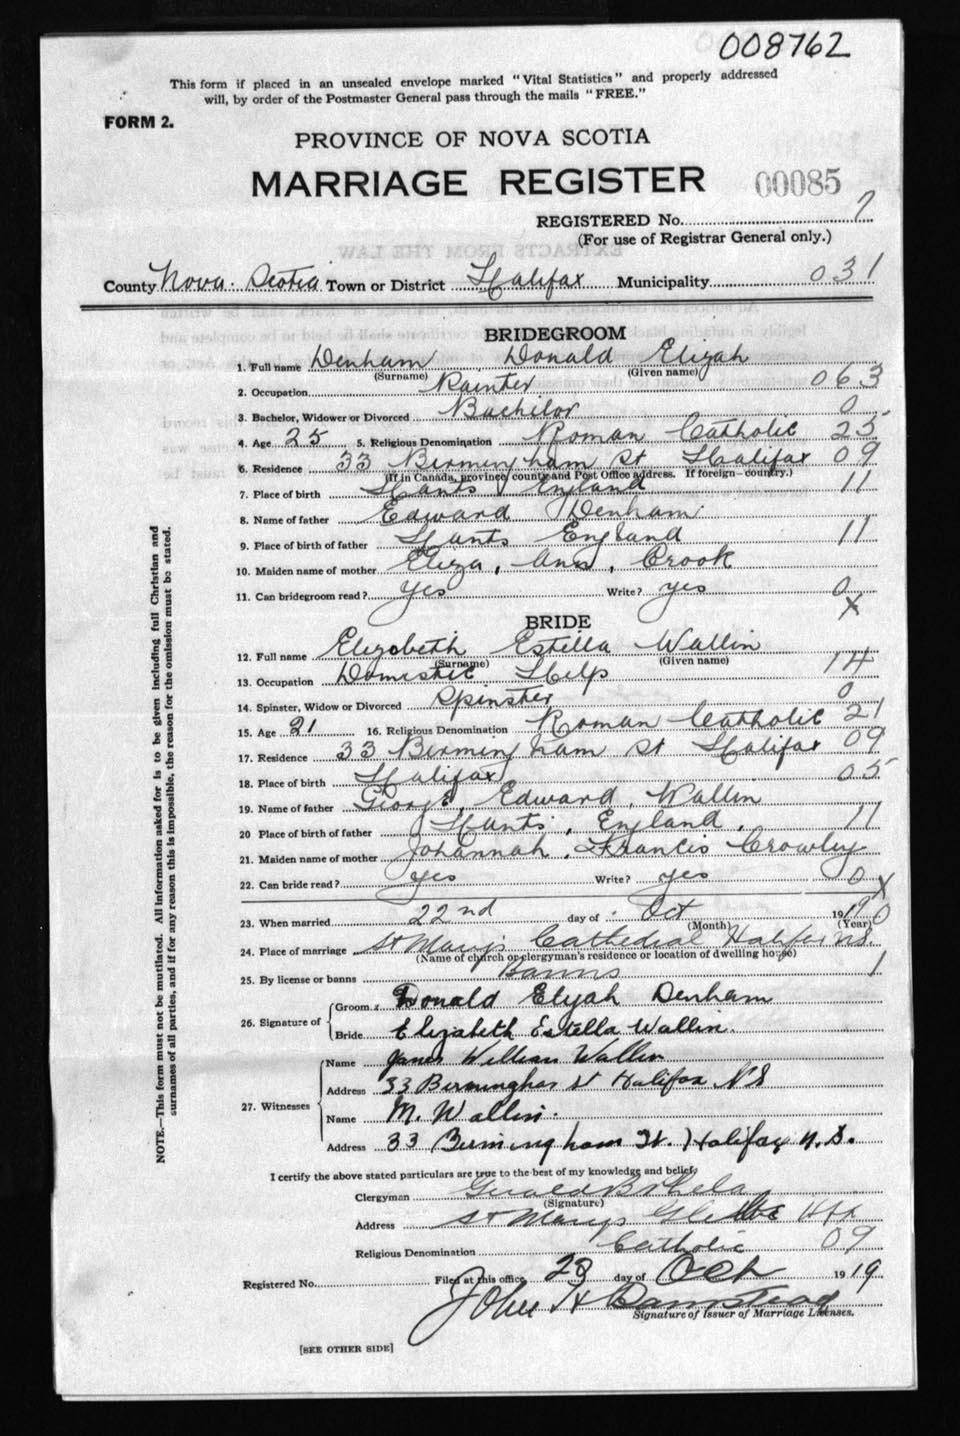 008762
This form if placed in an unsealed envelope marked "Vital Statistics" and properly addressed
will, by order of the Postmaster General pass through the mails "FREE."
FORM 2.
PROVINCE OF NOVA SCOTIA
MARRIAGE REGISTER 00085
REGISTERED No. 7
(For use of Registrar General only.)
County Nova Scotia Town or District Halifax Municipality 031
BRIDEGROOM
1. Full name Denham Donald Elijah
(Surname) (Given name)
2. Occupation Painter 063
3. Bachelor, Widower or Divorced Bachilor 0
4. Age 25 5. Religious Denomination Roman Catholic 25
6. Residence 33 Birmingham St Halifax 09
(If in Canada, province, county and Post Office address. If foreign—country.)
7. Place of birth Hants England 11
8. Name of father Edward Denham
9. Place of birth of father Hants England 11
10. Maiden name of mother Eliza, Ann, Crook
11. Can bridegroom read? yes Write? yes 0
x
BRIDE
12. Full name Elizabeth Estella Wallin
(Surname) (Given name)
13. Occupation Domistic Help 14
14. Spinster, Widow or Divorced Spinster 0
15. Age 21 16. Religious Denomination Roman Catholic 21
17. Residence 33 Birmingham St Halifax 09
18. Place of birth Halifax 05
19. Name of father George, Edward, Wallin
20 Place of birth of father Hants, England, 11
21. Maiden name of mother Johannah, Francis Crowley
22. Can bride read? yes Write? yes 0 x
23. When married 22nd day of Oct 1919 0
(Month) (Year)
24. Place of marriage St Mary's Cathedral Halifax N.S.
(Name of church or clergyman's residence or location of dwelling house)
25. By license or banns Banns 1
26. Signature of Groom Donald Elijah Denham
Bride Elizabeth Estella Wallin.
27. Witnesses Name James William Wallin
Address 33 Birmingham St Halifax NS
Name M. Wallin.
Address 33 Birmingham St. Halifax N.S.
I certify the above stated particulars are true to the best of my knowledge and belief,
Clergyman Gerald B
(Signature)
Address St Marys Glebe Hfx
Religious Denomination Catholic 09
Registered No. Filed at this office, 23 day of Oct 1919
John H
Signature of Issuer of Marriage Licenses.
[SEE OTHER SIDE]
NOTE.—This form must not be mutilated. All information asked for is to be given including full Christian and
surnames of all parties, and if for any reason this is impossible, the reason for the omission must be stated.